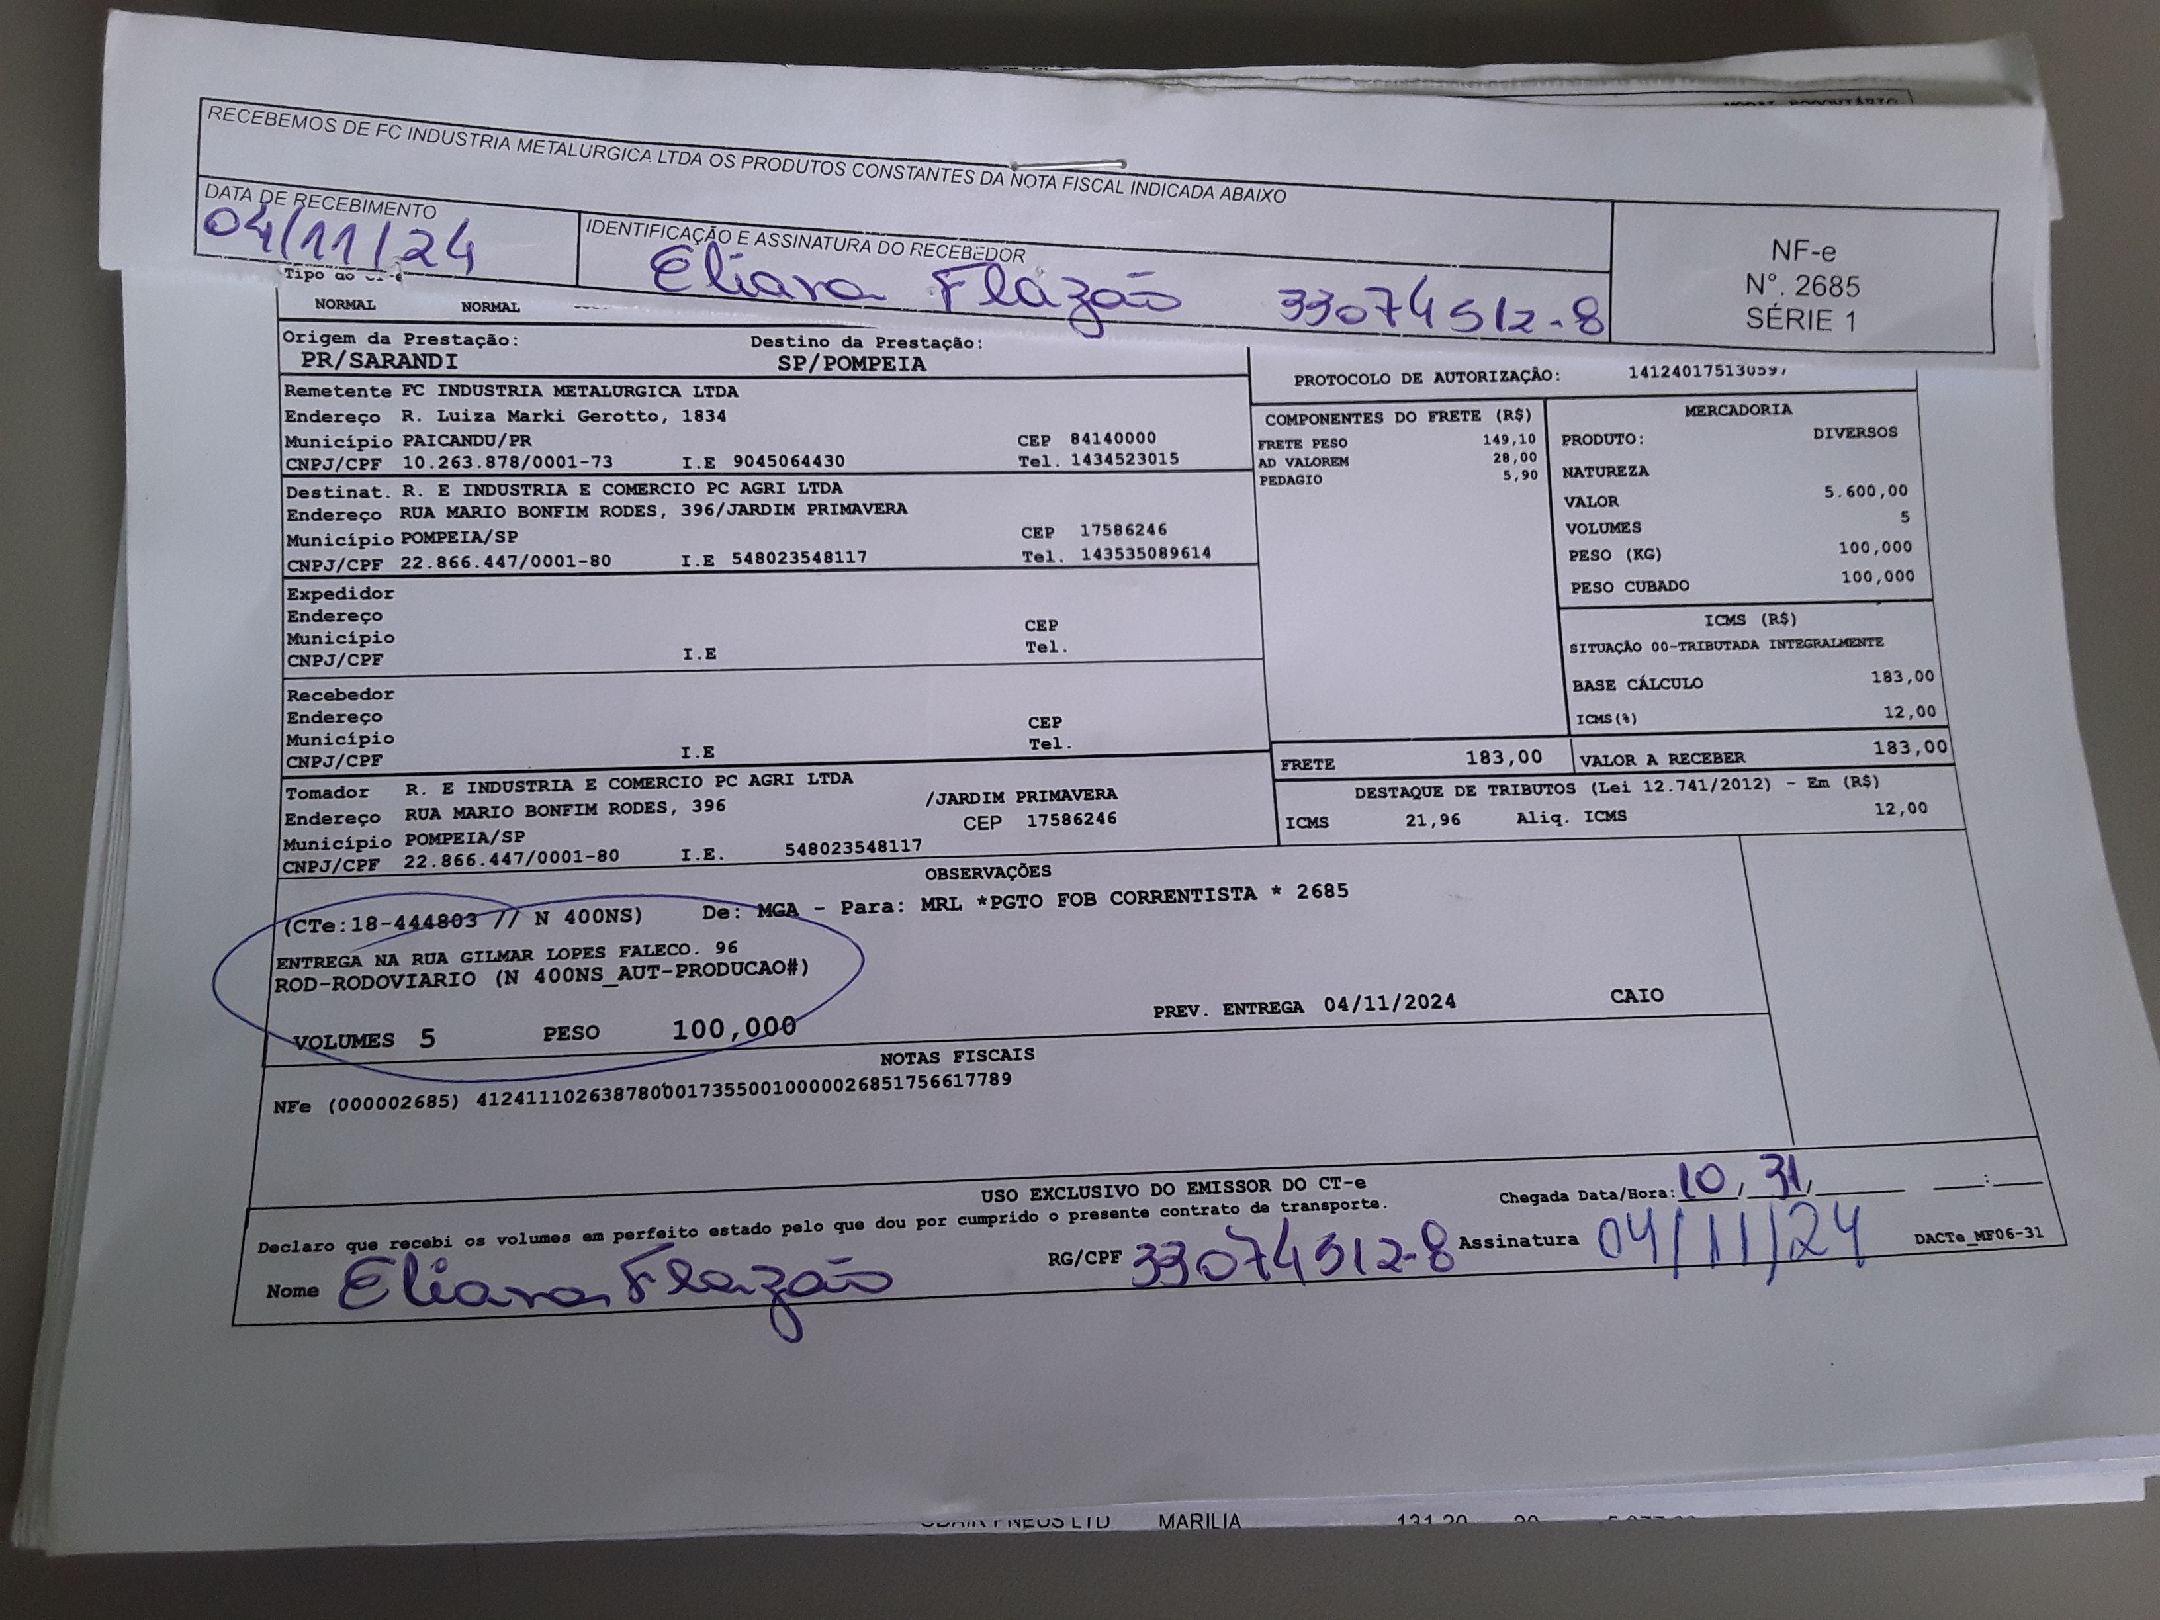 RECEBEMOS DE FC INDUSTRIA METALURGICA LTDA OS PRODUTOS CONSTANTES DA NOTA FISCAL INDICADA ABAIXO
DATA DE RECEBIMENTO
04/11/24
IDENTIFICAÇÃO E ASSINATURA DO RECEBEDOR
Eliana Flazão 33074512-8
NF-e
Nº. 2685
SÉRIE 1
NORMAL NORMAL
Origem da Prestação: Destino da Prestação:
PR/SARANDI SP/POMPEIA
Remetente FC INDUSTRIA METALURGICA LTDA
Endereço R. Luiza Marki Gerotto, 1834
Município PAICANDU/PR CEP 84140000
CNPJ/CPF 10.263.878/0001-73 I.E 9045064430 Tel. 1434523015
Destinat. R. E INDUSTRIA E COMERCIO PC AGRI LTDA
Endereço RUA MARIO BONFIM RODES, 396/JARDIM PRIMAVERA
Município POMPEIA/SP CEP 17586246
CNPJ/CPF 22.866.447/0001-80 I.E 548023548117 Tel. 143535089614
Expedidor
Endereço
Município CEP
CNPJ/CPF I.E Tel.
Recebedor
Endereço
Município CEP
CNPJ/CPF I.E Tel.
Tomador R. E INDUSTRIA E COMERCIO PC AGRI LTDA
Endereço RUA MARIO BONFIM RODES, 396 /JARDIM PRIMAVERA
Município POMPEIA/SP CEP 17586246
CNPJ/CPF 22.866.447/0001-80 I.E. 548023548117
PROTOCOLO DE AUTORIZAÇÃO: 141240175130597
COMPONENTES DO FRETE (R$)
FRETE PESO 149,10
AD VALOREM 28,00
PEDAGIO 5,90
MERCADORIA
PRODUTO: DIVERSOS
NATUREZA
VALOR 5.600,00
VOLUMES 5
PESO (KG) 100,000
PESO CUBADO 100,000
ICMS (R$)
SITUAÇÃO 00-TRIBUTADA INTEGRALMENTE
BASE CÁLCULO 183,00
ICMS(%) 12,00
FRETE 183,00 VALOR A RECEBER 183,00
DESTAQUE DE TRIBUTOS (Lei 12.741/2012) - Em (R$)
ICMS 21,96 Aliq. ICMS 12,00
OBSERVAÇÕES
(CTe:18-444803 // N 400NS) De: MGA - Para: MRL *PGTO FOB CORRENTISTA * 2685
ENTREGA NA RUA GILMAR LOPES FALECO. 96
ROD-RODOVIARIO (N 400NS_AUT-PRODUCAO#)
VOLUMES 5 PESO 100,000 PREV. ENTREGA 04/11/2024 CAIO
NOTAS FISCAIS
NFe (000002685) 41241110263878000173550010000026851756617789
USO EXCLUSIVO DO EMISSOR DO CT-e
Declaro que recebi os volumes em perfeito estado pelo que dou por cumprido o presente contrato de transporte.
Chegada Data/Hora: 10, 31,
Nome Eliana Flazão RG/CPF 33074512-8 Assinatura 04/11/24 DACTe_MF06-31
MARILIA